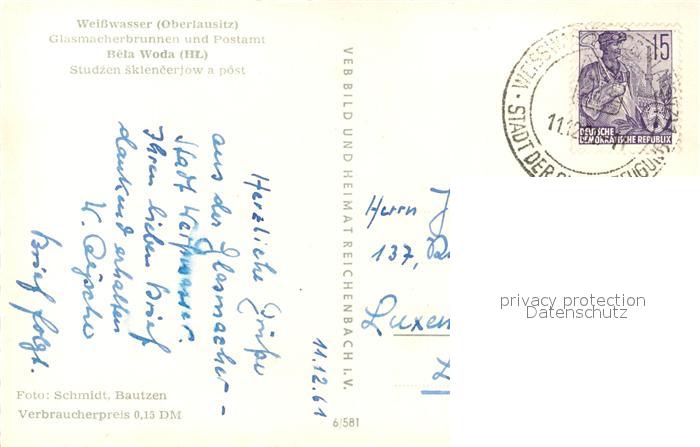 Weißwasser (Oberlausitz)
Glasmacherbrunnen und Postamt
Běła Woda (HŁ)
Studźen šklenčerjow a póst
VEB BILD UND HEIMAT REICHENBACH I. V.
15
DEUTSCHE
DEMOKRATISCHE REPUBLIK
11.12
STADT DER
11.12.61
Herzliche Grüße
aus der Glasmacher-
Stadt Weißwasser.
Ihren lieben Brief
dankend erhalten
Brief folgt.
Herrn J
137,
Luxem
privacy protection
Datenschutz
Foto: Schmidt, Bautzen
Verbraucherpreis 0,15 DM
6/581